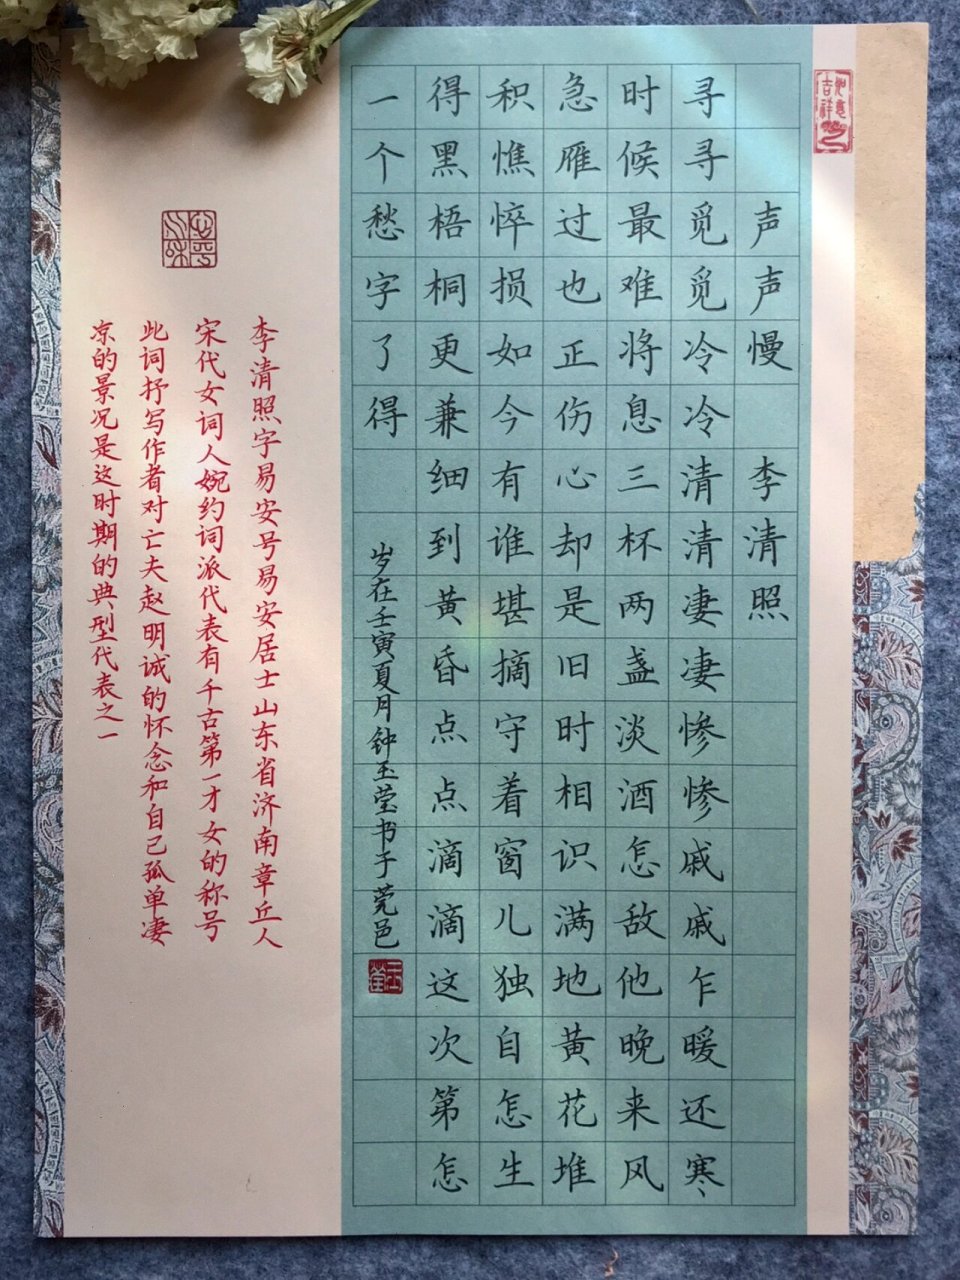 如意吉祥
声声慢 李清照
寻寻觅觅冷冷清清凄凄惨惨戚戚乍暖还寒
时候最难将息三杯两盏淡酒怎敌他晚来风
急雁过也正伤心却是旧时相识满地黄花堆
积憔悴损如今有谁堪摘守着窗儿独自怎生
得黑梧桐更兼细到黄昏点点滴滴这次第怎
一个愁字了得
岁在壬寅夏月钟玉莹书于莞邑
李清照字易安号易安居士山东省济南章丘人
宋代女词人婉约词派代表有千古第一才女的称号
此词抒写作者对亡夫赵明诚的怀念和自己孤单凄
凉的景况是这时期的典型代表之一